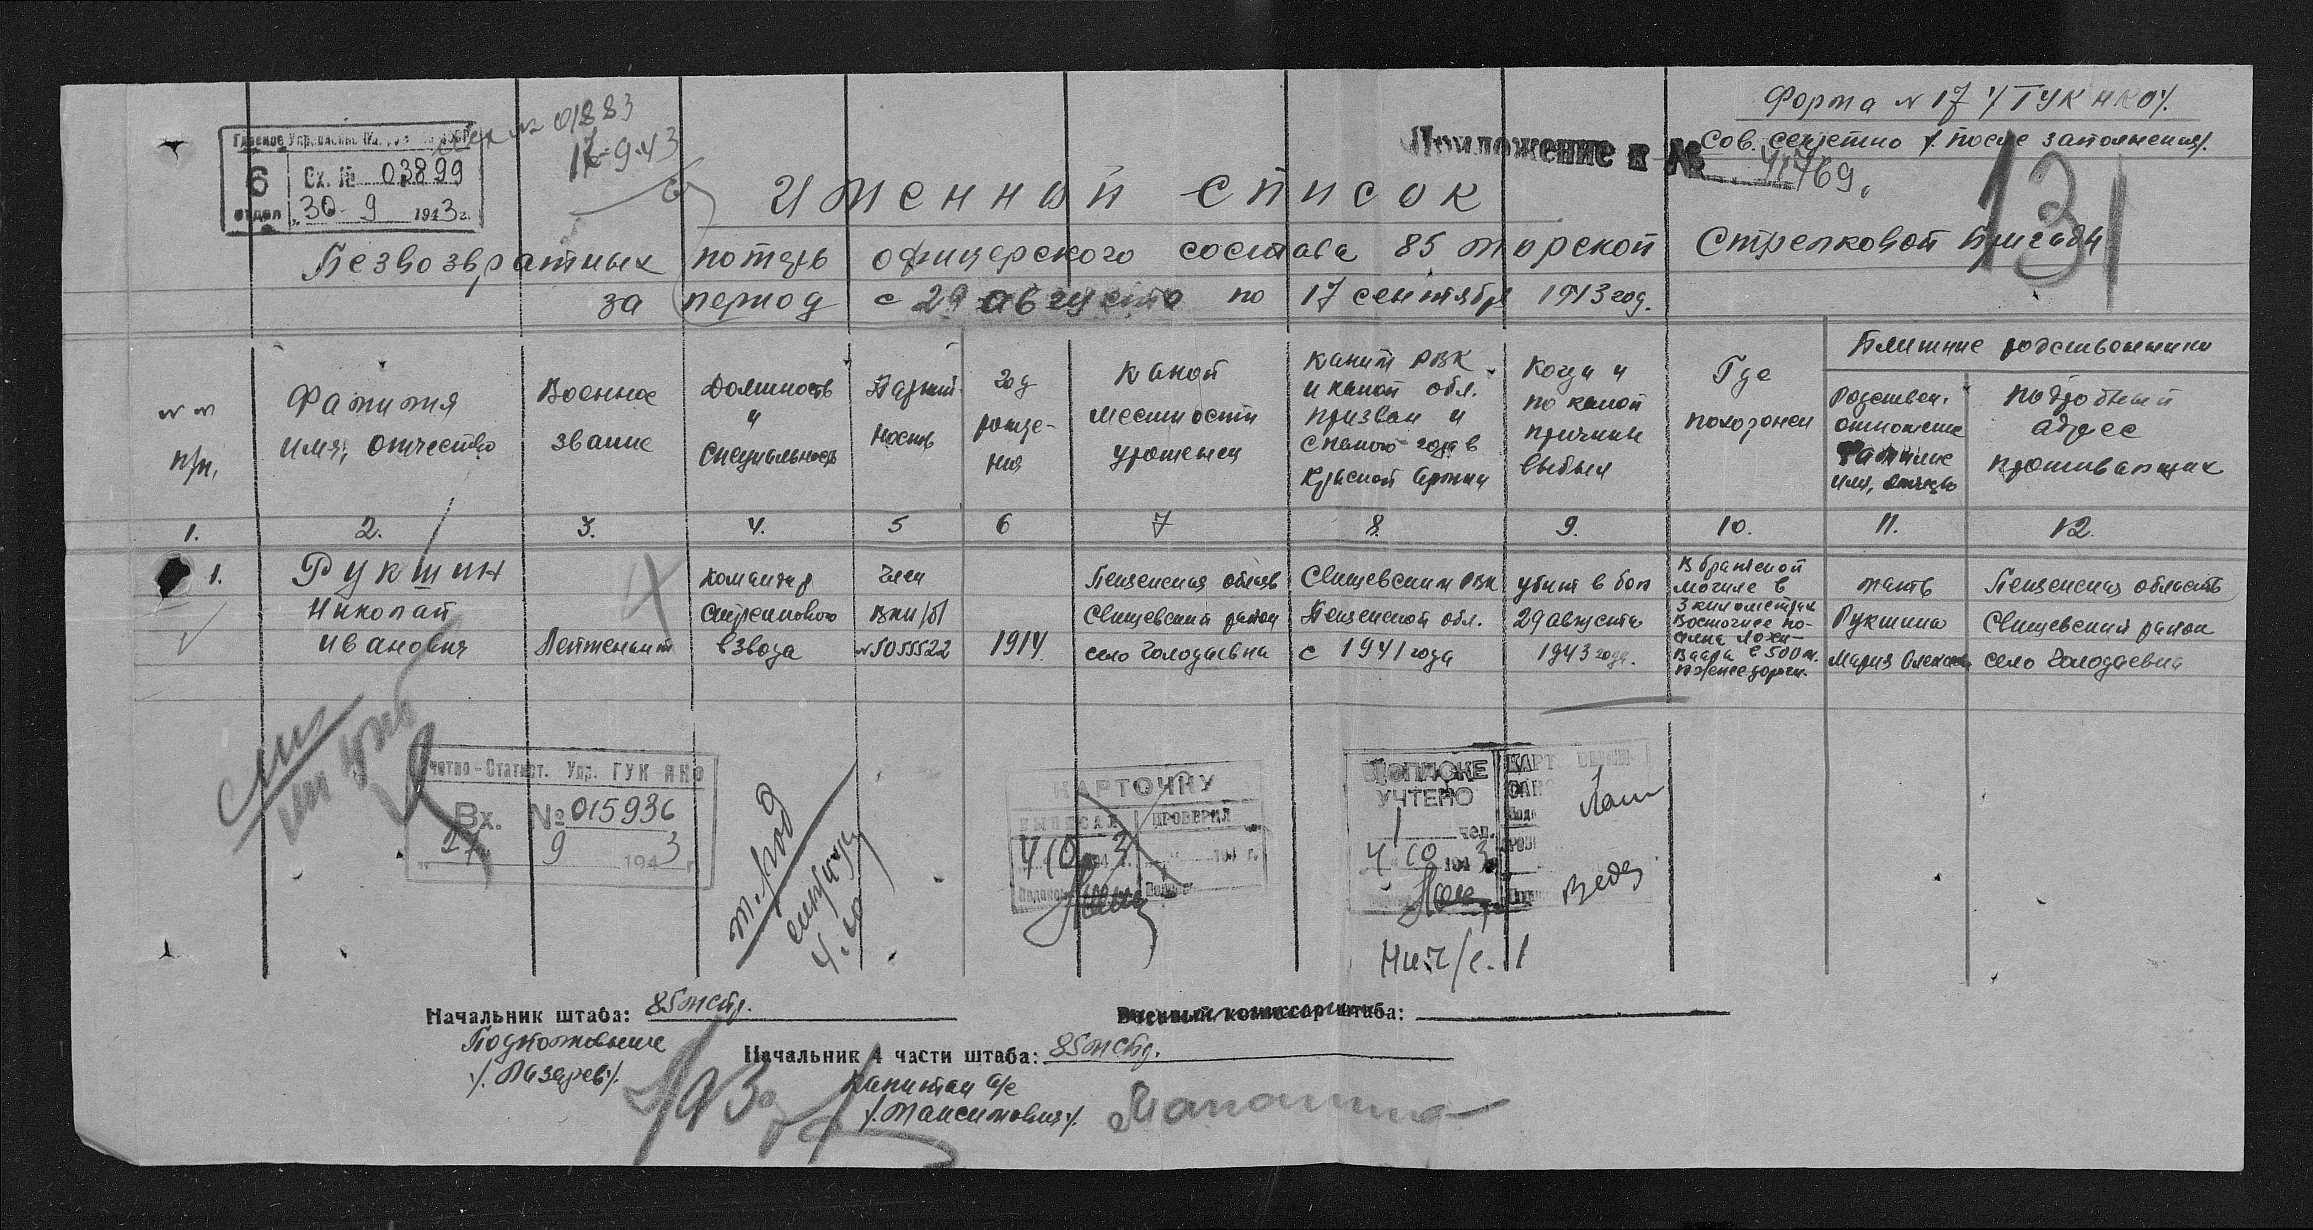 Форма № 17 /ГУК НКО/.
Сов. секретно /после заполнения/.
Приложение к №
131
Вх. № 03899
6 отдел
30 - 9 1943 г.
№ 01883
17-9-43
Именной список
Безвозвратных потерь офицерского состава 85 морской стрелковой бригады
за период с 29 августа по 17 сентября 1943 год.
№ № п/п.
Фамилия имя, отчество
Военное звание
Должность и специальность
Партийность
Год рождения
Какой местности уроженец
Каким РВК и какой обл. призван и с какого года в Красной Армии
Когда и по какой причине выбыл
Где похоронен
Ближние родственники
Родствен. отношение фамилие имя, отчество
Подробный адрес проживающих
1. 2. 3. 4. 5 6 7 8. 9. 10. 11. 12.
1.
Рукшин
Николай
Иванович
Лейтенант
Командир
стрелкового
взвода
Член
ВКП/б/
№ 5055522
1914
Пензенская область
Свищевский район
село Голодаевка
Свищевским РВК
Пензенской обл.
с 1941 года
убит в бою
29 августа
1943 года.
В братской
могиле в
3 километрах
Восточнее по-
Ваара с 500 м.
мать
Рукшина
Мария
Пензенская область
Свищевский район
село Голодаевка
Учетно-Статист. Упр. ГУК НКО
Вх. № 015936
27 9 1943 г.
КАРТОЧКУ
ВЫПИСАЛ ПРОВЕРИЛ
4 10 194 3 г.
УЧТЕНО
1 чел.
4 10 194 3
Нач/с. 1
Начальник штаба: 85 мсбр.
Подполковник
/. Лазарев /.
Начальник 4 части штаба: 85 мсбр.
Капитан а/с
/. Максимович /.
штаба: